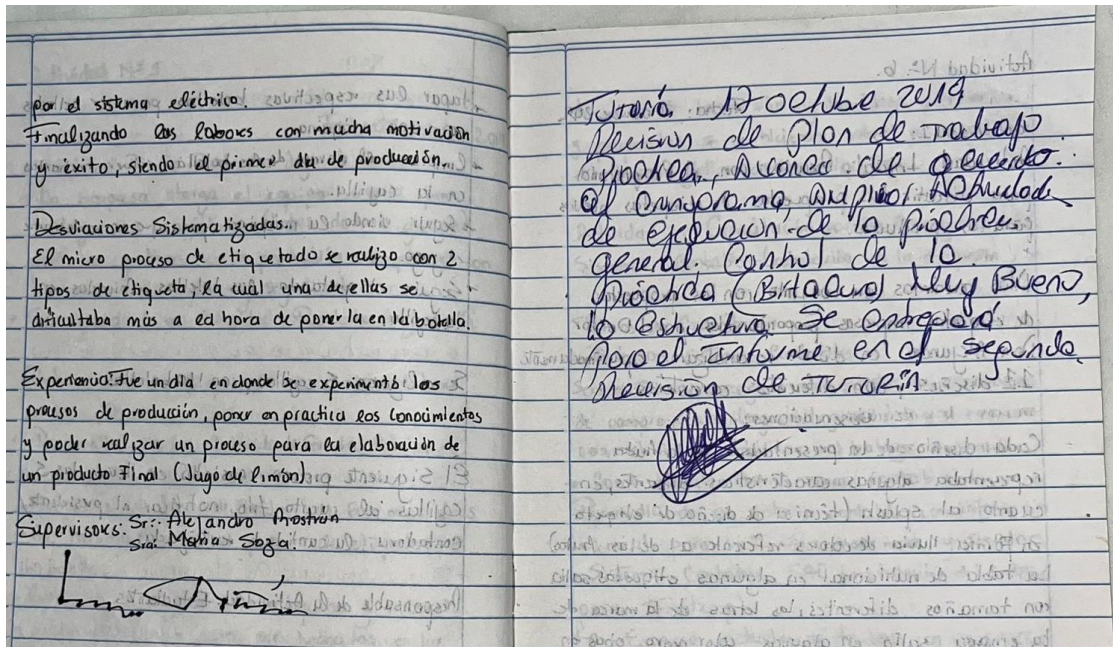 por el sistema eléctrico.
Finalizando las labores con mucha motivación
y éxito, siendo el primer día de producción.
Desviaciones Sistematizadas.
El micro proceso de etiquetado se realizo con 2
tipos de etiqueta, la cuál una de ellas se
dificultaba más a la hora de ponerla en la botella.
Experiencia: Fue un día en donde se experimentó los
procesos de producción, poner en practica los conocimientos
y poder realizar un proceso para la elaboración de
un producto Final (Jugo de limón).
Supervisores: Sr: Alejandro Prostran
Sra: María
Tutoría. 17 octubre 2019
de Plan de trabajo
de acuerdo
al
de ejecución de la
general. Control de la
(Bitacora) Muy Bueno,
la estructura se entregará
para el Informe en el segundo
de Tutoría